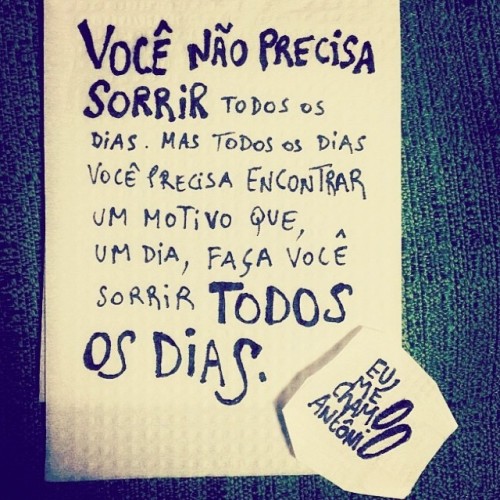 VOCÊ NÃO PRECISA
SORRIR TODOS OS
DIAS. MAS TODOS OS DIAS
VOCÊ PRECISA ENCONTRAR
UM MOTIVO QUE,
UM DIA, FAÇA VOCÊ
SORRIR TODOS
OS DIAS.
EU
ME
CHAMO
ANTÔNIO